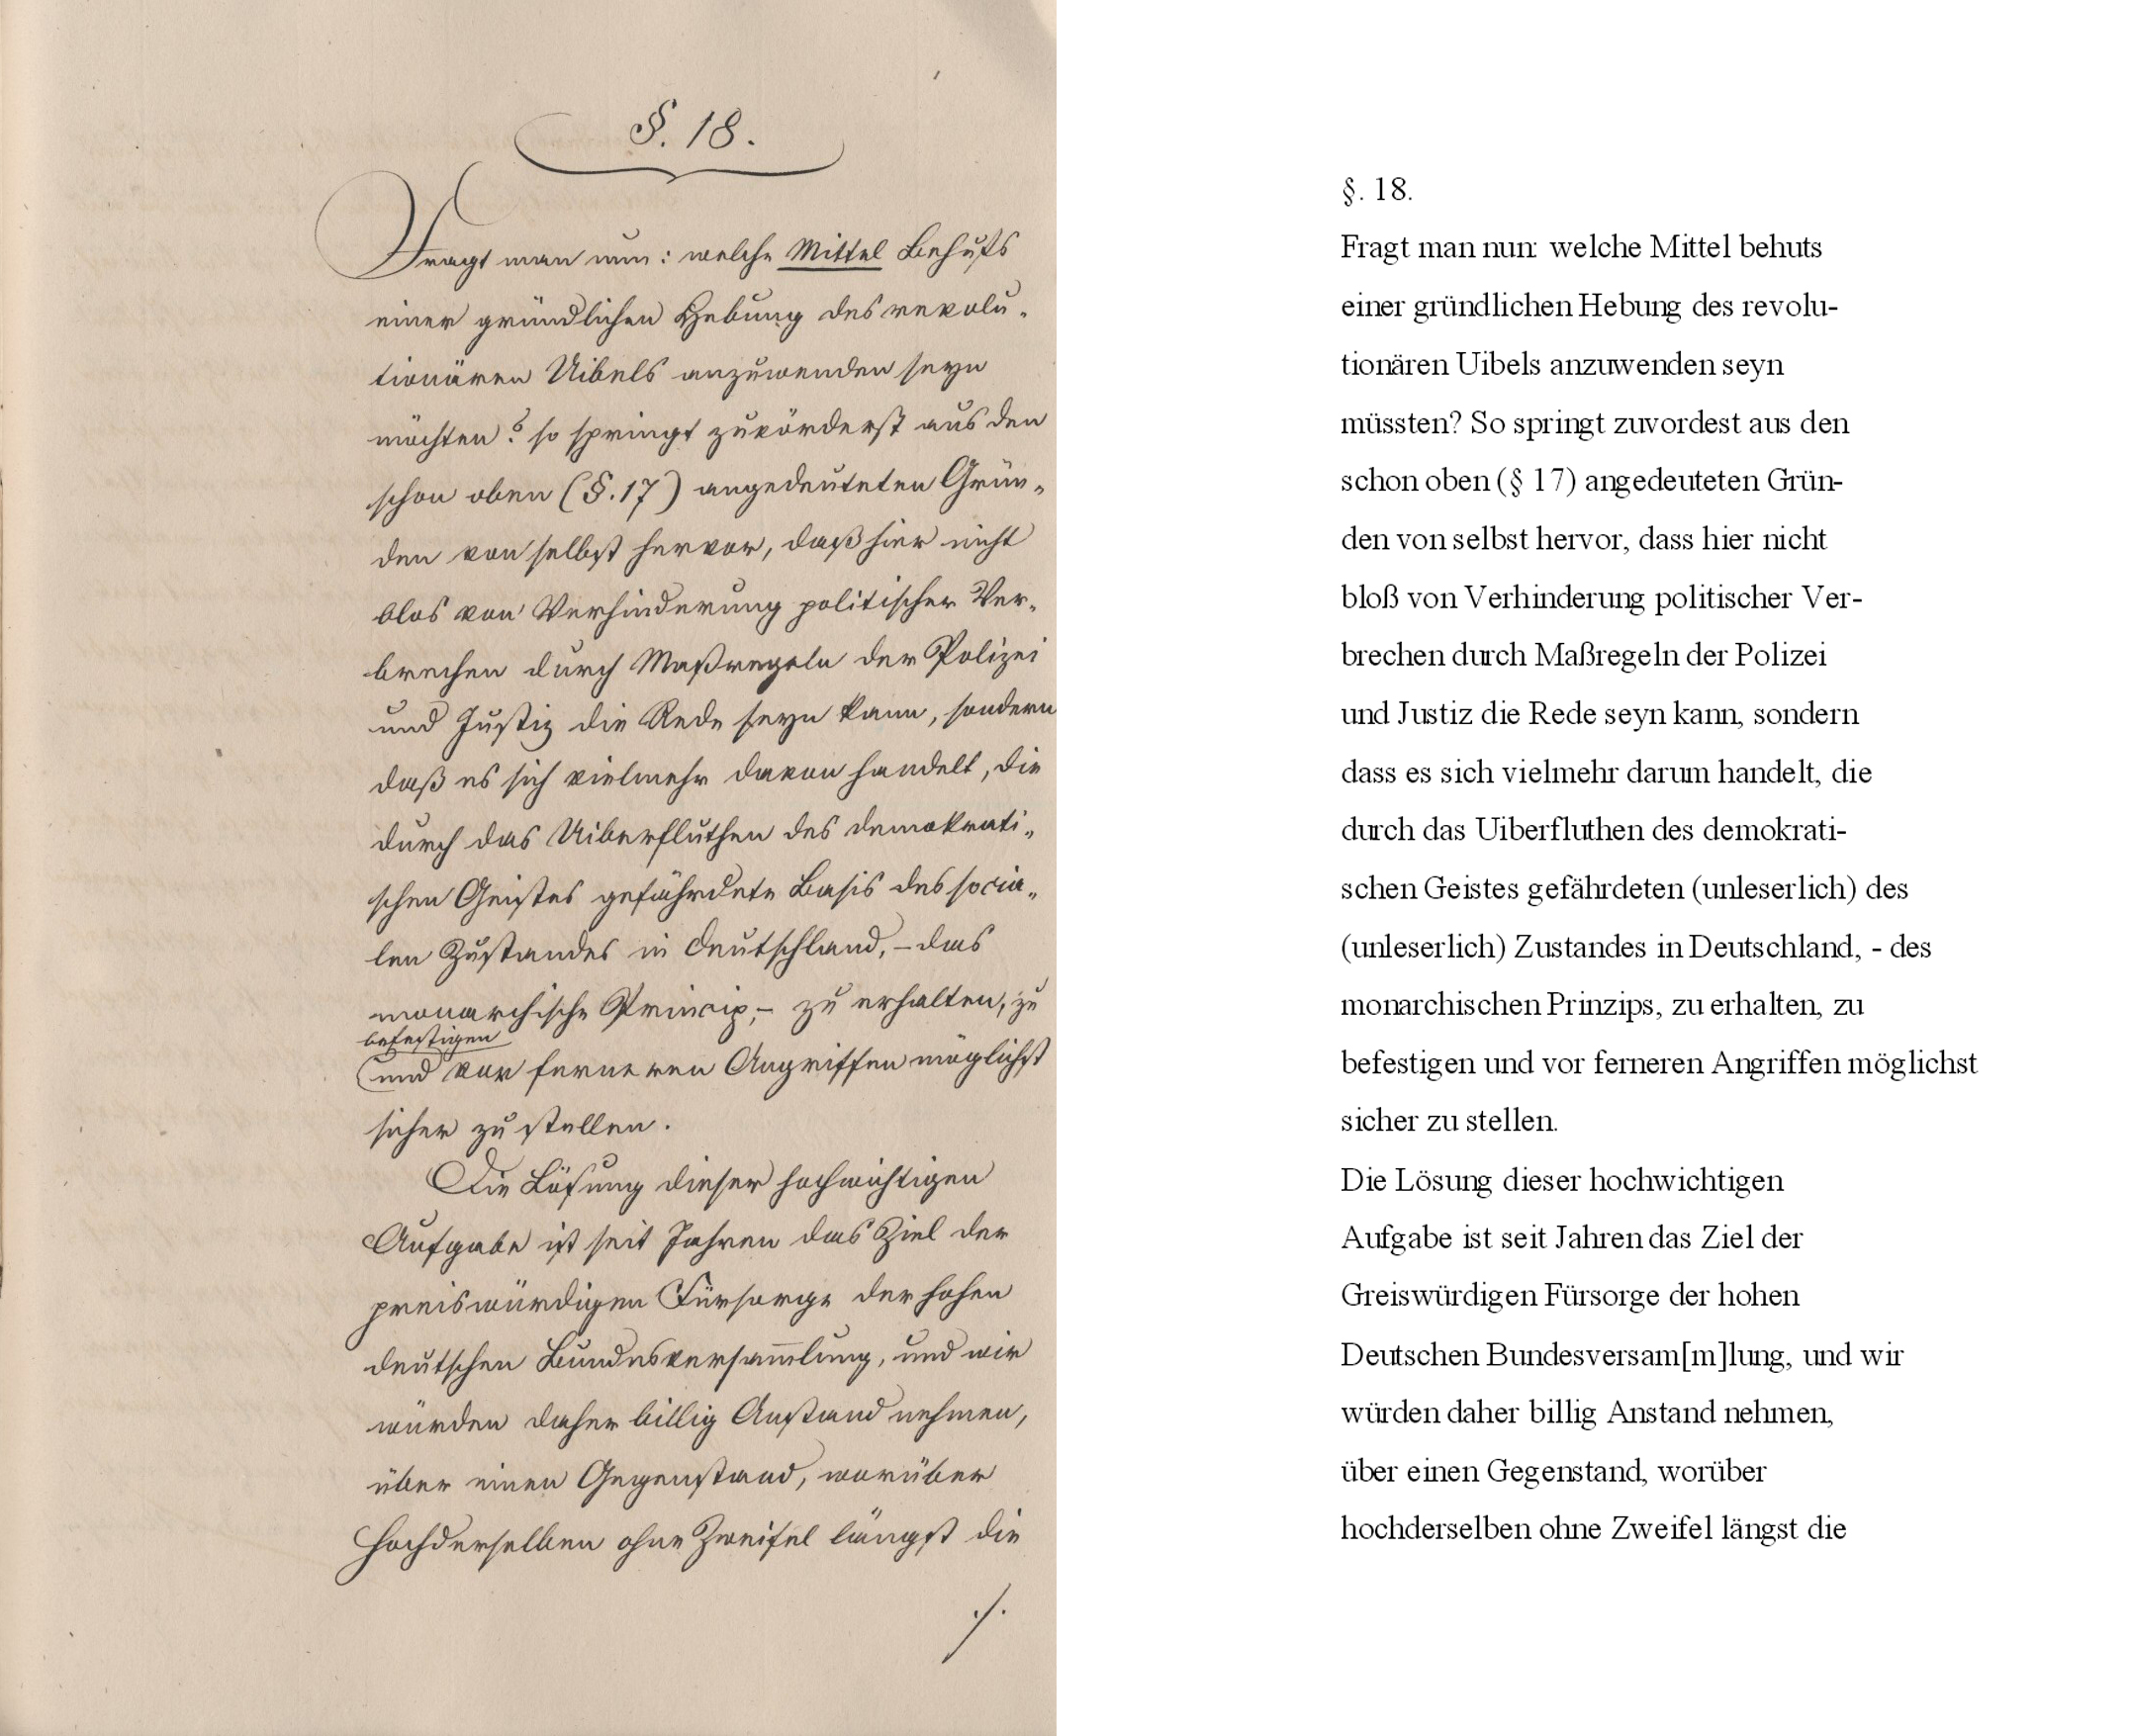 §. 18.
Fragt man nun: welche Mittel Behufs
einer gründlichen Hebung des revolu-
tionären Uibels anzuwenden seyn
möchten? so springt zuvörderst aus den
schon oben (§. 17) angedeuteten Grün-
den von selbst hervor, daß hier nicht
blos von Verhinderung politischer Ver-
brechen durch Maßregeln der Polizei
und Justiz die Rede seyn kann, sondern
daß es sich vielmehr davon handelt, die
durch das Uiberfluthen des demokrati-
schen Geistes gefährdete Basis des socia-
len Zustandes in Deutschland, – das
monarchische Princip, – zu erhalten, zu
befestigen
und vor ferneren Angriffen möglichst
sicher zu stellen.
Die Lösung dieser hochwichtigen
Aufgabe ist seit Jahren das Ziel der
preiswürdigen Fürsorge der hohen
deutschen Bundesversam̅lung, und wir
würden daher billig Anstand nehmen,
über einen Gegenstand, worüber
Hochderselben ohne Zweifel längst die
./.
§. 18.
Fragt man nun: welche Mittel behuts
einer gründlichen Hebung des revolu-
tionären Uibels anzuwenden seyn
müssten? So springt zuvordest aus den
schon oben (§ 17) angedeuteten Grün-
den von selbst hervor, dass hier nicht
bloß von Verhinderung politischer Ver-
brechen durch Maßregeln der Polizei
und Justiz die Rede seyn kann, sondern
dass es sich vielmehr darum handelt, die
durch das Uiberfluthen des demokrati-
schen Geistes gefährdeten (unleserlich) des
(unleserlich) Zustandes in Deutschland, - des
monarchischen Prinzips, zu erhalten, zu
befestigen und vor ferneren Angriffen möglichst
sicher zu stellen.
Die Lösung dieser hochwichtigen
Aufgabe ist seit Jahren das Ziel der
Greiswürdigen Fürsorge der hohen
Deutschen Bundesversam[m]lung, und wir
würden daher billig Anstand nehmen,
über einen Gegenstand, worüber
hochderselben ohne Zweifel längst die